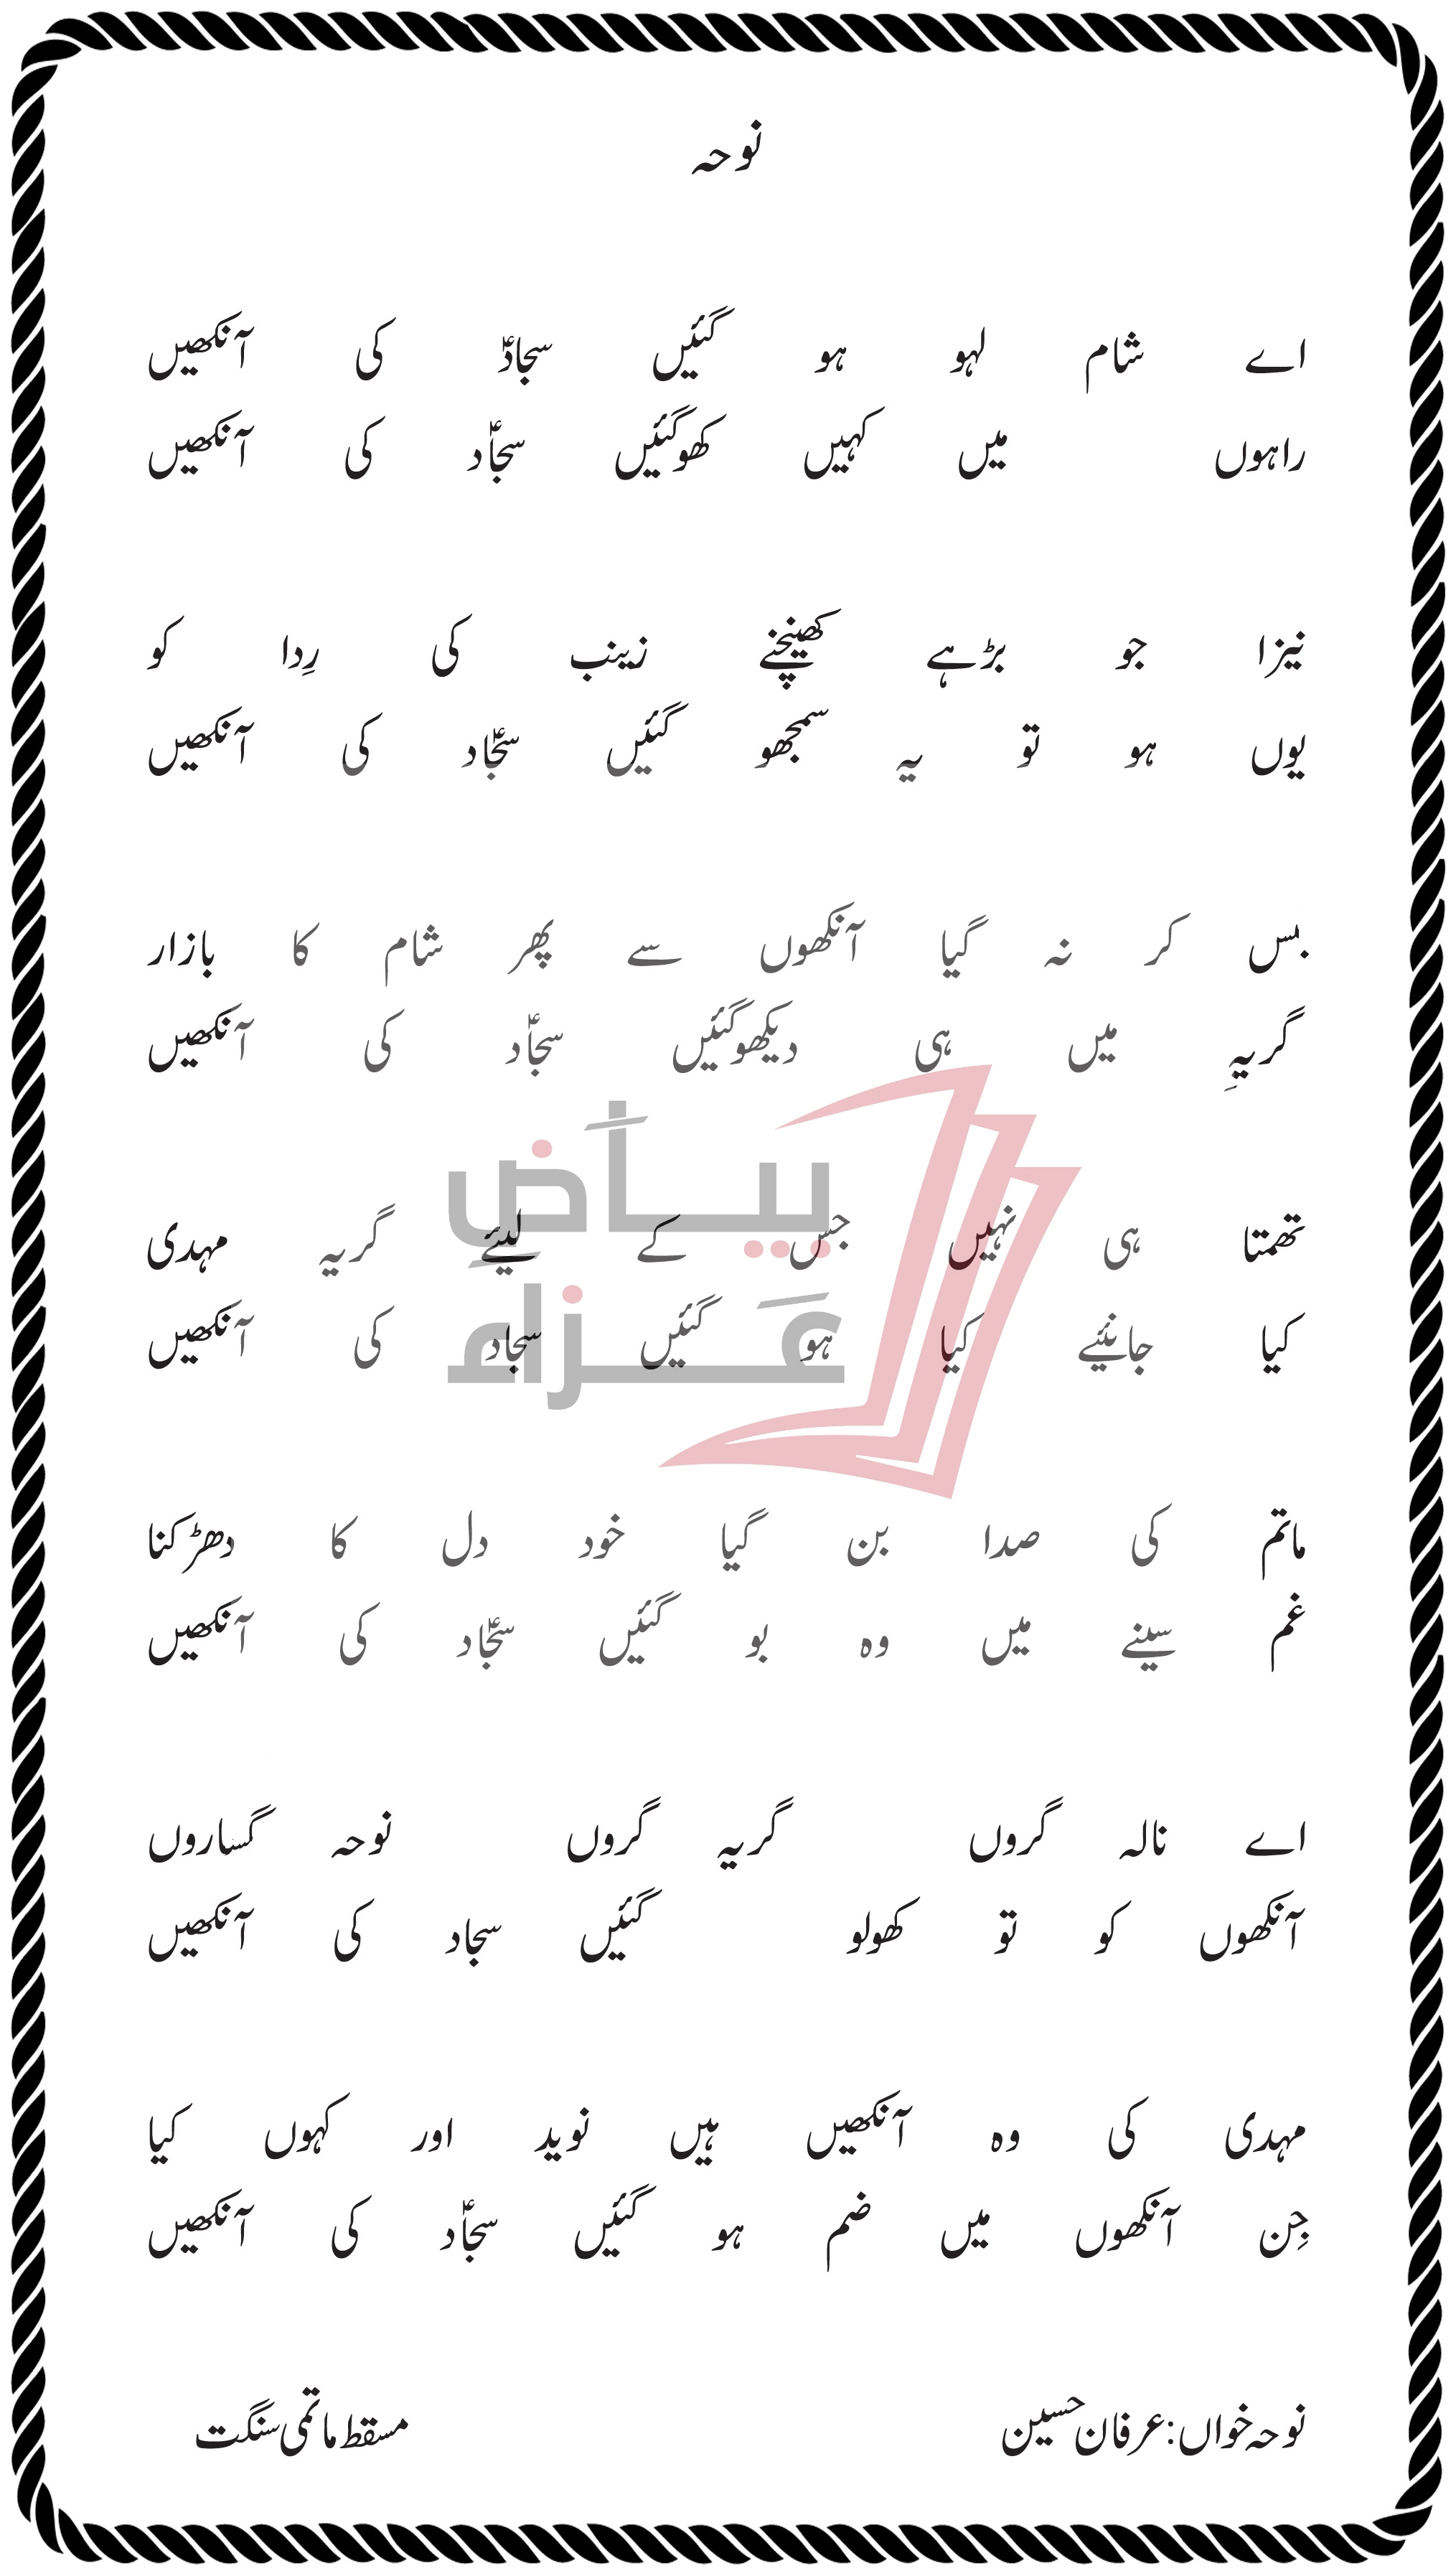 نوحہ
اے شام لہو ہو گئیں سجادؑ کی آنکھیں
راہوں میں کہیں کھوگئیں سجاؑد کی آنکھیں
نیزا جو بڑہے کھینچنے زینب کی رِدا کو
یوں ہو تو یہ سمجھو گئیں سجؑاد کی آنکھیں
بس کر نہ گیا آنکھوں سے پھر شام کا بازار
گریہِ میں ہی دیکھوگئیں سجاؑد کی آنکھیں
تھمتا ہی نہیں جس کے لیئے گریہ مہدی
کیا جانیئے کیا ہو گئیں سجاد کی آنکھیں
ماتم کی صدا بن گیا خود دل کا دھڑکنا
غم سینے میں وہ بو گئیں سجؑاد کی آنکھیں
اے نالہ گروں گریہ گروں نوحہ گساروں
آنکھوں کو تو کھولو گئیں سجاد کی آنکھیں
مہدی کی وہ آنکھیں ہیں نوید اور کہوں کیا
جِن آنکھوں میں ضم ہو گئیں سجاؑد کی آنکھیں
نوحہ خواں: عرفان حسین مسقط ماتمی سنگت
بیاضِ
عَزاء